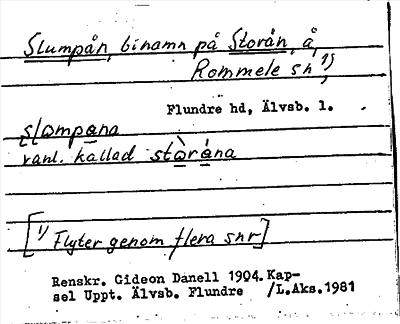 Slumpån, binamn på Storån, å,
Rommele sn 1),
Flundre hd, Älvsb. l.
slompana
vanl. kallad stòråna
[1) Flyter genom flera snr]
Renskr. Gideon Danell 1904. Kap-
sel Uppt. Älvsb. Flundre /L.Aks.1981